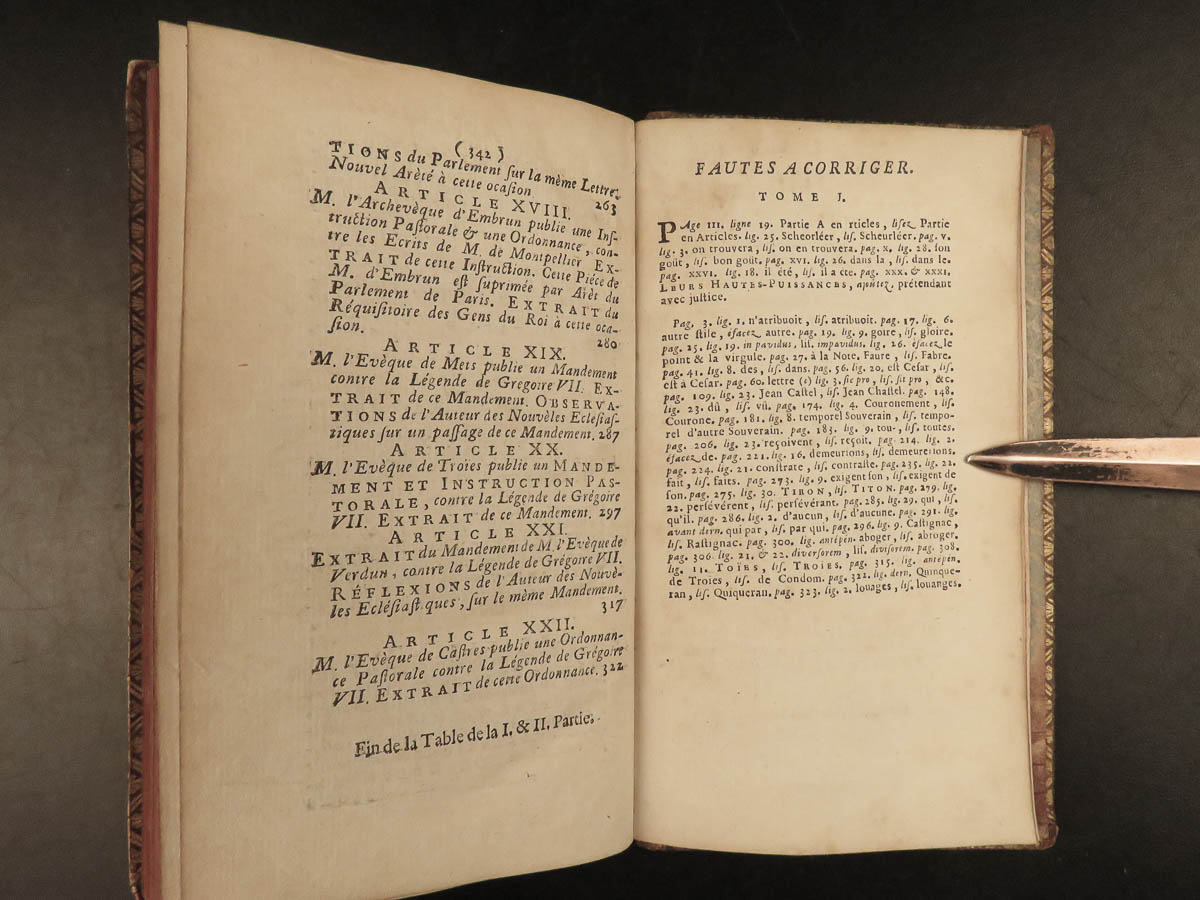 (342)
TIONS du Parlement sur la mème Lettre;
Nouvel Arèté à cette ocasion 263
ARTICLE XVIII.
M. l'Archevèque d'Embrun publie une Ins-
truction Pastorale & une Ordonnance, con-
tre les Ecrits de M. de Montpellier EX-
TRAIT de cette Instruction. Cette Piéce de
M. d'Embrun est suprimée par Arèt du
Parlement de Paris. EXTRAIT du
Réquisitoire des Gens du Roi à cette oca-
sion. 280
ARTICLE XIX.
M. l'Evèque de Mets publie un Mandement
contre la Légende de Grégoire VII. EX-
TRAIT de ce Mandement. OBSERVA-
TIONS de l'Auteur des Nouvèles Eclésias-
tiques sur un passage de ce Mandement. 287
ARTICLE XX.
M. l'Evèque de Troïes publie un MANDE-
MENT ET INSTRUCTION PAS-
TORALE, contre la Légende de Grégoire
VII. EXTRAIT de ce Mandement. 297
ARTICLE XXI.
EXTRAIT du Mandement de M. l'Evèque de
Verdun, contre la Légende de Grégoire VII.
RÉFLEXIONS de l'Auteur des Nouvè-
les Eclésiastiques, sur le mème Mandement.
317
ARTICLE XXII.
M. l'Evèque de Castres publie une Ordonnan-
ce Pastorale contre la Légende de Grégoire
VII. EXTRAIT de cette Ordonnance. 322
Fin de la Table de la I. & II. Partie.
FAUTES A CORRIGER.
TOME I.
PAge III. ligne 19. Partie A en rticles, lisez Partie
en Articles. lig. 25. Scheorléer, lis. Scheurléer. pag. v.
lig. 3. on trouvera, lis. on en trouvera. pag. x. lig. 28. son
goût, lis. bon goût. pag. XVI. lig. 26. dans la, lis. dans le.
pag. XXVI. lig. 18. il été, lis. il a été. pag. XXX. & XXXI.
LEURS HAUTES-PUISSANCES, ajoutez, prétendant
avec justice.
Pag. 3. lig. 1. n'atribuoit, lis. atribuoit. pag. 17. lig. 6.
autre stile, éfacez autre. pag. 19. lig. 9. goire, lis. gloire.
pag. 25. lig. 19. in pavidus, lis. impavidus. lig. 26. éfacez le
point & la virgule. pag. 27. à la Note. Faure, lis. Fabre.
pag. 41. lig. 8. des, lis. dans. pag. 56. lig. 20. est Cesar, lis.
est à Cesar. pag. 60. lettre (c) lig. 3. sic pro, lis. sit pro, &c.
pag. 109. lig. 23. Jean Castel, lis. Jean Chastel. pag. 148.
lig. 23. dû, lis. vû. pag. 174. lig. 4. Couronement, lis.
Courone. pag. 181. lig. 8. temporel Souverain, lis. tempo-
rel d'autre Souverain. pag. 183. lig. 9. tou-, lis. toutes.
pag. 206. lig. 23. reçoivent, lis. reçoit. pag. 214. lig. 2.
éfacez de. pag. 221. lig. 16. demeurions, lis. demeurerions.
pag. 224. lig. 21. constrate, lis. contraste. pag. 235. lig. 22.
fait, lis. faits. pag. 273. lig. 9. exigent son, lis. exigent de
son. pag. 275. lig. 30. TIRON, lis. TITON. pag. 279. lig.
22. persévérent, lis. persévérant. pag. 285. lig. 29. qui, lis.
qu'il. pag. 286. lig. 2. d'aucun, lis. d'aucune. pag. 291. lig.
avant dern. qui par, lis. par qui. pag. 296. lig. 9. Castignac,
lis. Rastignac. pag. 300. lig. antépén. aboger, lis. abroger.
pag. 306. lig. 21. & 22. diversorem, lis. divisorem. pag. 308.
lig. 11. TOÏES, lis. TROÏES. pag. 315. lig. antépén.
de Troies, lis. de Condom. pag. 322. lig. dern. Quinque-
ran, lis. Quiqueran. pag. 323. lig. 2. louages, lis. louanges.